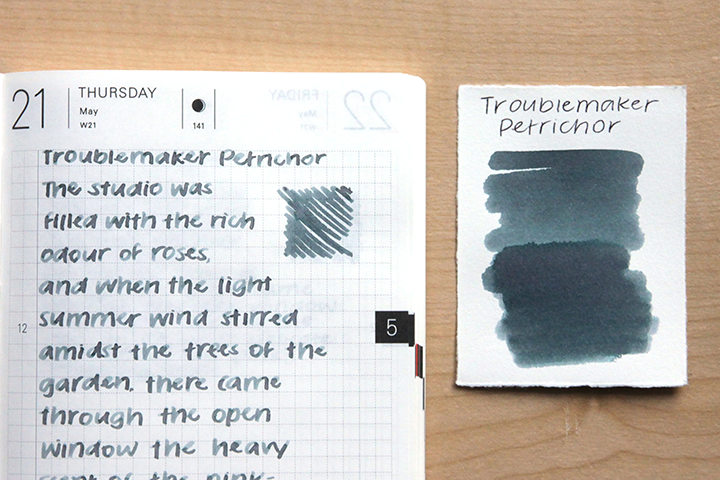 21
THURSDAY
May
W21
141
FRIDAY
22
May
W21
Troublemaker Petrichor
The studio was
filled with the rich
odour of roses,
and when the light
12 summer wind stirred
5
amidst the trees of the
garden, there came
through the open
window the heavy
scent of the pink-
Troublemaker
Petrichor